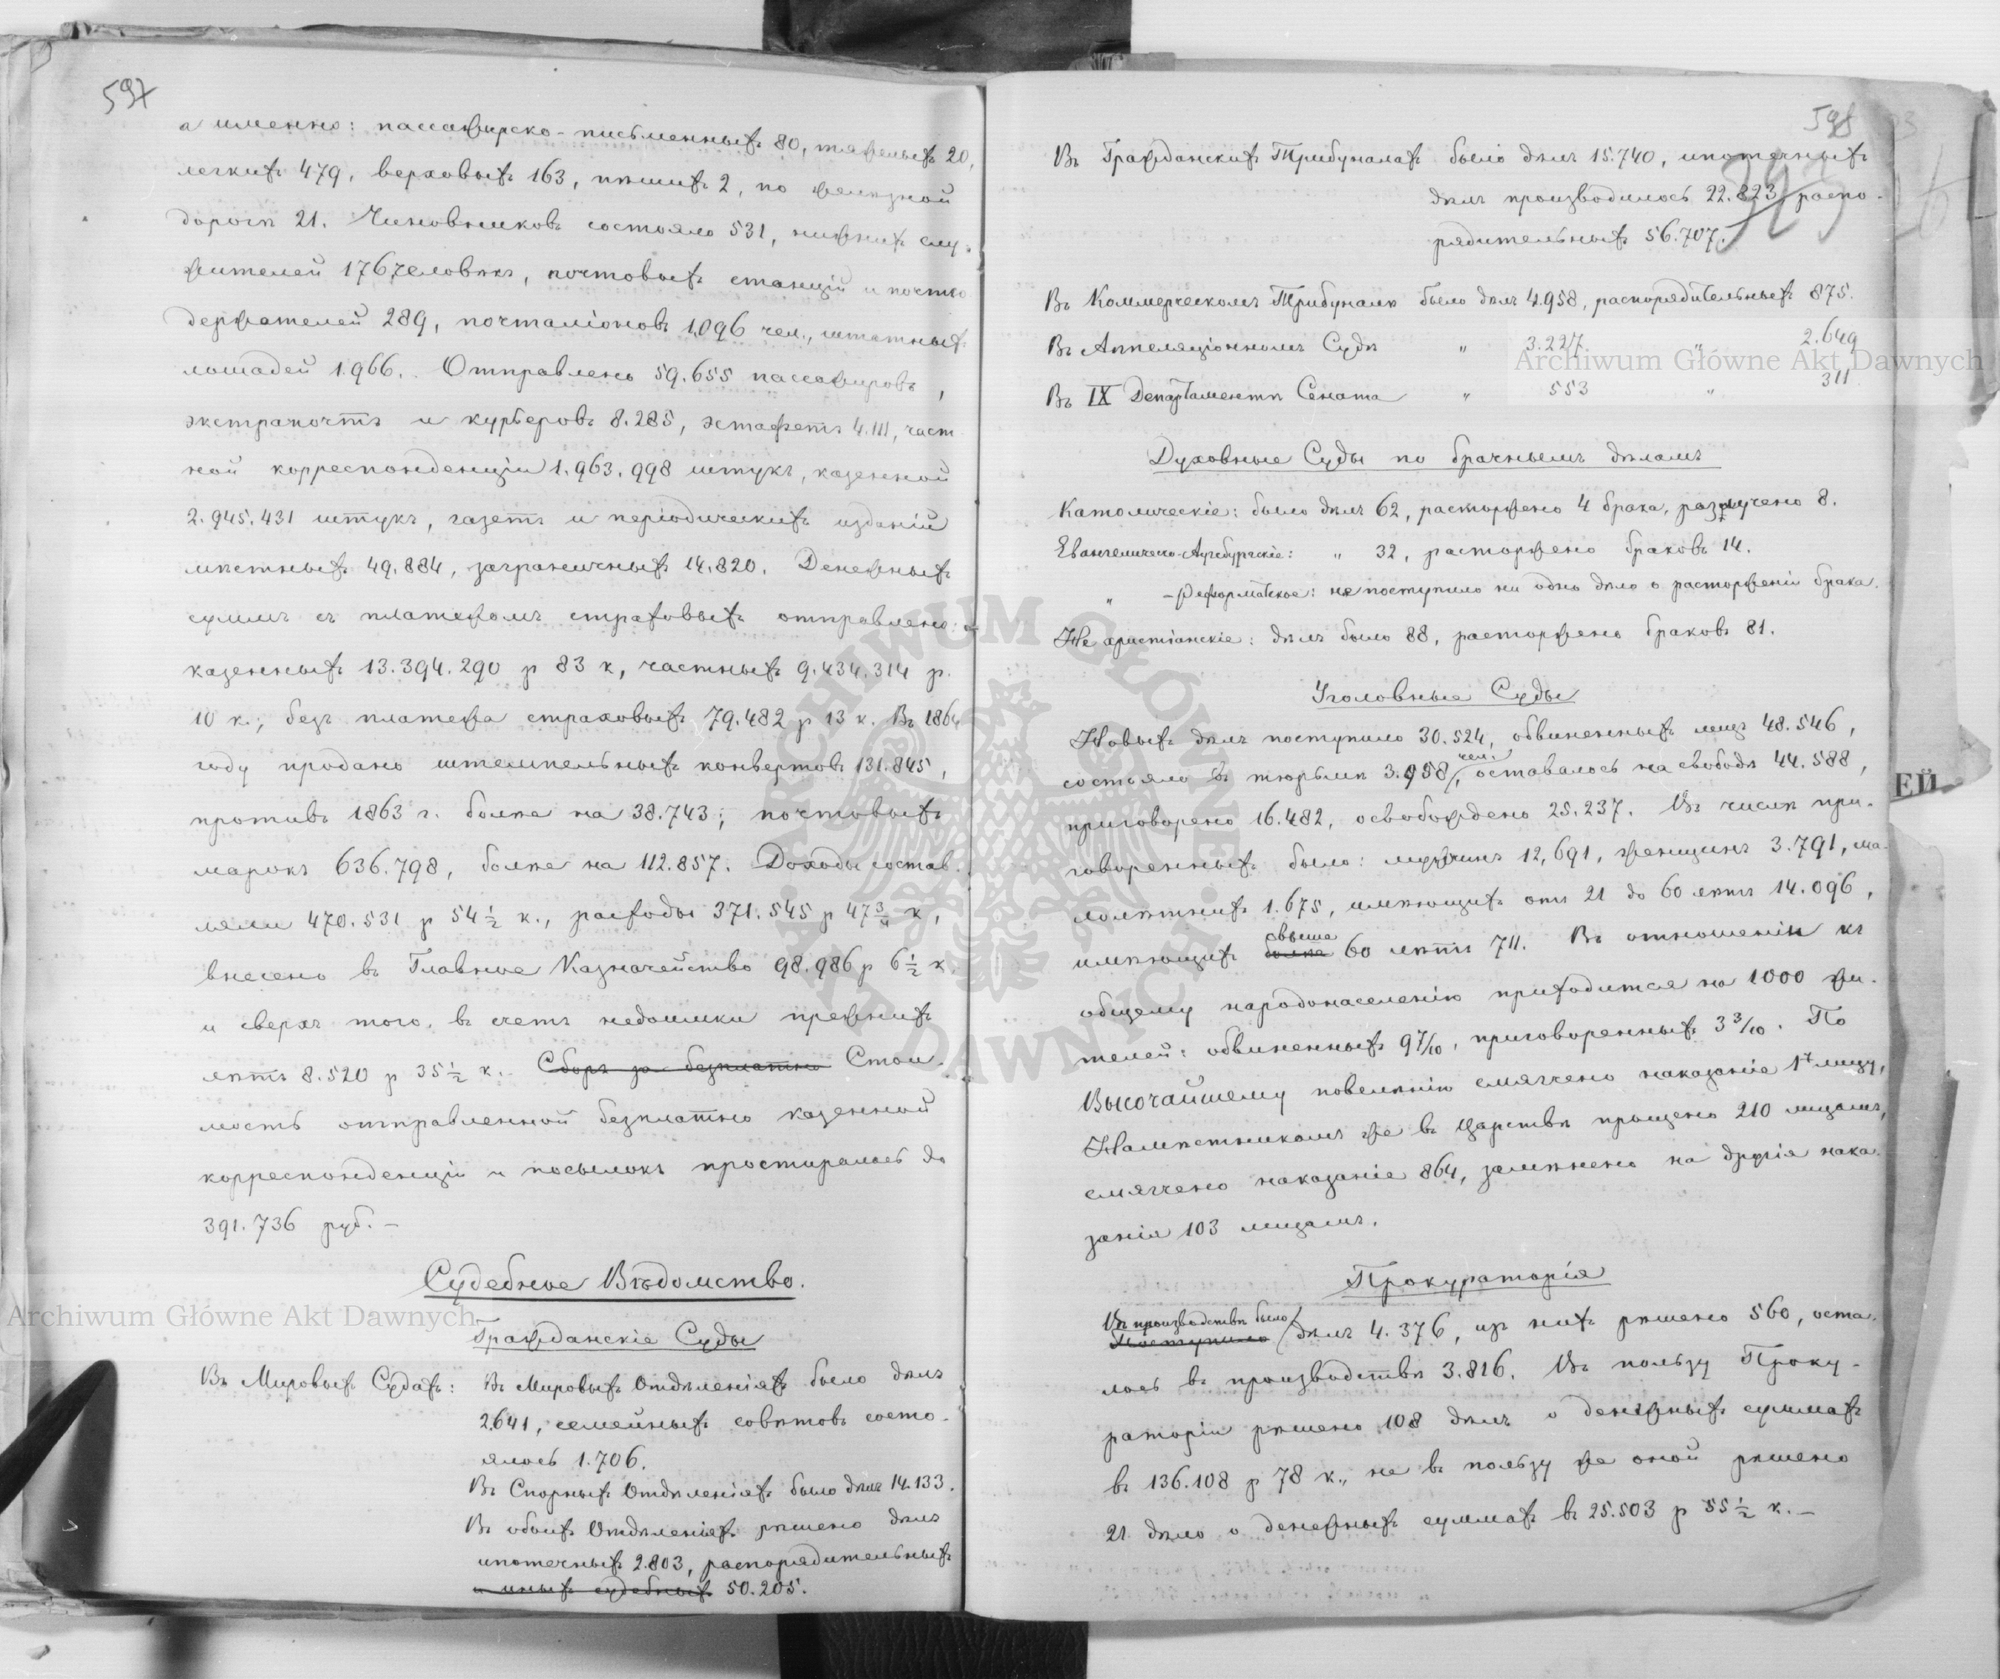 597
а именно: пассажирско-письменныхъ 80, тяжелыхъ 20,
легкихъ 479, верховыхъ 163, пѣшихъ 2, по желѣзной
дорогѣ 21. Чиновниковъ состояло 531, нижнихъ слу-
жителей 176 человѣкъ, почтовыхъ станцій и почто
держателей 289, почталіоновъ 1.096 чел., штатныхъ
лошадей 1.966. Отправлено 59.655 пассажировъ,
экстрапочтъ и курьеровъ 8.285, эстафетъ 4.111, част
ной корреспонденціи 1.963.998 штукъ, казенной
2.945.431 штукъ, газетъ и періодическихъ изданій
мѣстныхъ 49.884, заграничныхъ 14.820. Денежныхъ
суммъ съ платежомъ страховыхъ отправлено:
казенныхъ 13.394.290 р 83 к, частныхъ 9.434.314 р.
10 к.; безъ платежа страховыхъ 79.482 р 13 к. Въ 1864
году продано штемпельныхъ конвертовъ 131.845,
противъ 1863 г. болѣе на 38.743; почтовыхъ
марокъ 636.798, болѣе на 112.857. Доходы состав-
ляли 470.531 р 54 1/2 к., расходы 371.545 р 47 3/4 к,
внесено въ Главное Казначейство 98.986 р 6 1/2 к
и сверхъ того, въ счетъ недоимки прежнихъ
лѣтъ 8.520 р 35 1/2 к. Сборъ за безплатно Стои-
мость отправленной безплатно казенной
корреспонденціи и посылокъ простиралась до
391.736 руб. —
Судебное Вѣдомство.
Гражданскіе Суды
Въ Мировыхъ Судахъ: Въ Мировыхъ Отдѣленіяхъ было дѣлъ
2.641, семейныхъ совѣтовъ состо-
ялось 1.706.
Въ Спорныхъ Отдѣленіяхъ было дѣлъ 14.133.
Въ обоихъ Отдѣленіяхъ рѣшено дѣлъ
ипотечныхъ 2.803, распорядительныхъ
и иныхъ судебныхъ 50.205.
598
Въ Гражданскихъ Трибуналахъ было дѣлъ 15.740, ипотечныхъ
дѣлъ производилось 22.823, распо-
рядительныхъ 56.707.
Въ Коммерческомъ Трибуналѣ было дѣлъ 4.958, распорядительныхъ 875.
Въ Аппеляціонномъ Судѣ " 3.227. " 2.649
Въ IX Департаментѣ Сената " 553 " 311
Духовные Суды по брачнымъ дѣламъ
Католическіе: было дѣлъ 62, расторжено 4 брака, разлучено 8.
Евангелическо-Аугсбургскіе: " 32, расторжено браковъ 14.
" -Реформатское: не поступило ни одно дѣло о расторженіи брака.
Не христіанскіе: дѣлъ было 88, расторжено браковъ 81.
Уголовные Суды
Новыхъ дѣлъ поступило 30.524, обвиненныхъ лицъ 48.546,
состояло въ тюрьмѣ 3.958 чел., оставалось на свободѣ 44.588,
приговорено 16.482, освобождено 25.237. Въ числѣ при-
говоренныхъ было: мужчинъ 12,691, женщинъ 3.791, ма-
лолѣтнихъ 1.675, имѣющихъ отъ 21 до 60 лѣтъ 14.096,
имѣющихъ болѣе свыше 60 лѣтъ 711. Въ отношеніи къ
общему народонаселенію приходится на 1000 жи-
телей: обвиненныхъ 9 7/10, приговоренныхъ 3 3/10. По
Высочайшему повелѣнію смягчено наказаніе 1му лицу,
Намѣстникомъ же въ Царствѣ прощено 210 лицамъ,
смягчено наказаніе 864, замѣнено на другія нака-
занія 103 лицамъ.
Прокураторія
Поступило Въ производствѣ было дѣлъ 4.376, изъ нихъ рѣшено 560, оста-
лось въ производствѣ 3.816. Въ пользу Проку-
раторіи рѣшено 108 дѣлъ о денежныхъ суммахъ
въ 136.108 р 78 к., не въ пользу же оной рѣшено
21 дѣло о денежныхъ суммахъ въ 25.503 р 55 1/2 к. —
ЕЙ
Archiwum Główne Akt Dawnych
Archiwum Główne Akt Dawnych
ARCHIWUM GŁÓWNE AKT DAWNYCH